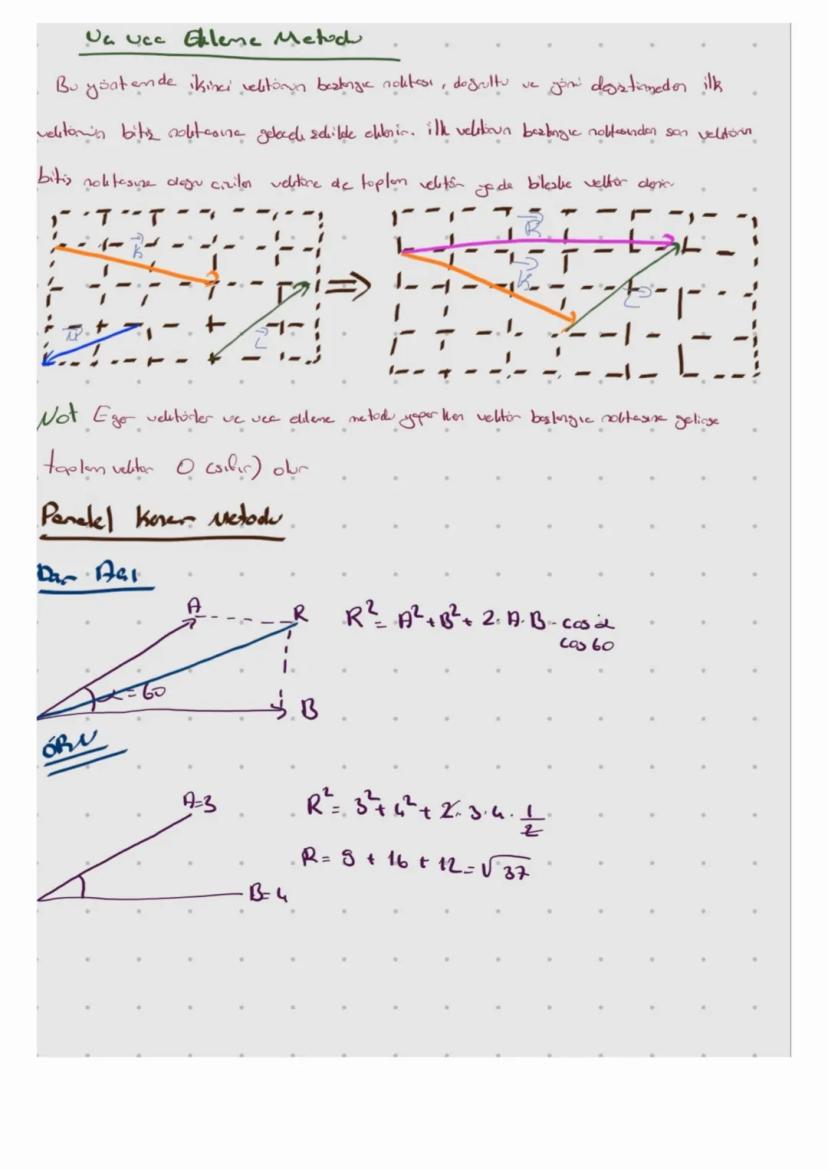 Uc uca Ekleme Metodu
Bu yöntemde ikinci vektörün başlangıç noktası, doğrultu ve yönü değiştirmeden ilk
vektörün bitiş noktasına gelecek şekilde eklenir. ilk vektörün başlangıç noktasından son vektörün
bitiş noktasına doğru çizilen vektöre de toplam vektör yada bileşke vektör denir
K
L
R
K
L
Not Eğer vektörler uc uca ekleme metodu yaparken vektör başlangıç noktasına gelirse
toplam vektör 0 (sıfır) olur
Paralel Kenar Metodu
Dar Açı
A
R
R² = A² + B² + 2.A.B.cosα
cos60
α=60
B
ÖRN
A=3
R² = 3² + 4² + 2.3.4.1/2
R = 9 + 16 + 12 = √37
B=4